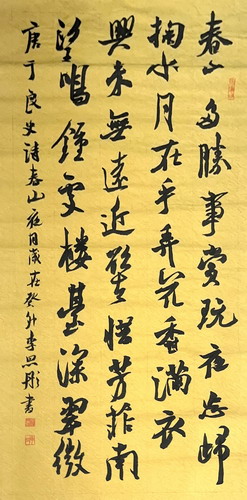 春山多勝事賞玩夜忘歸
掬水月在手弄花香滿衣
興來無遠近欲去惜芳菲南
望鳴鐘處樓臺深翠微
唐于良史詩春山夜月歲在癸卯李思彤書